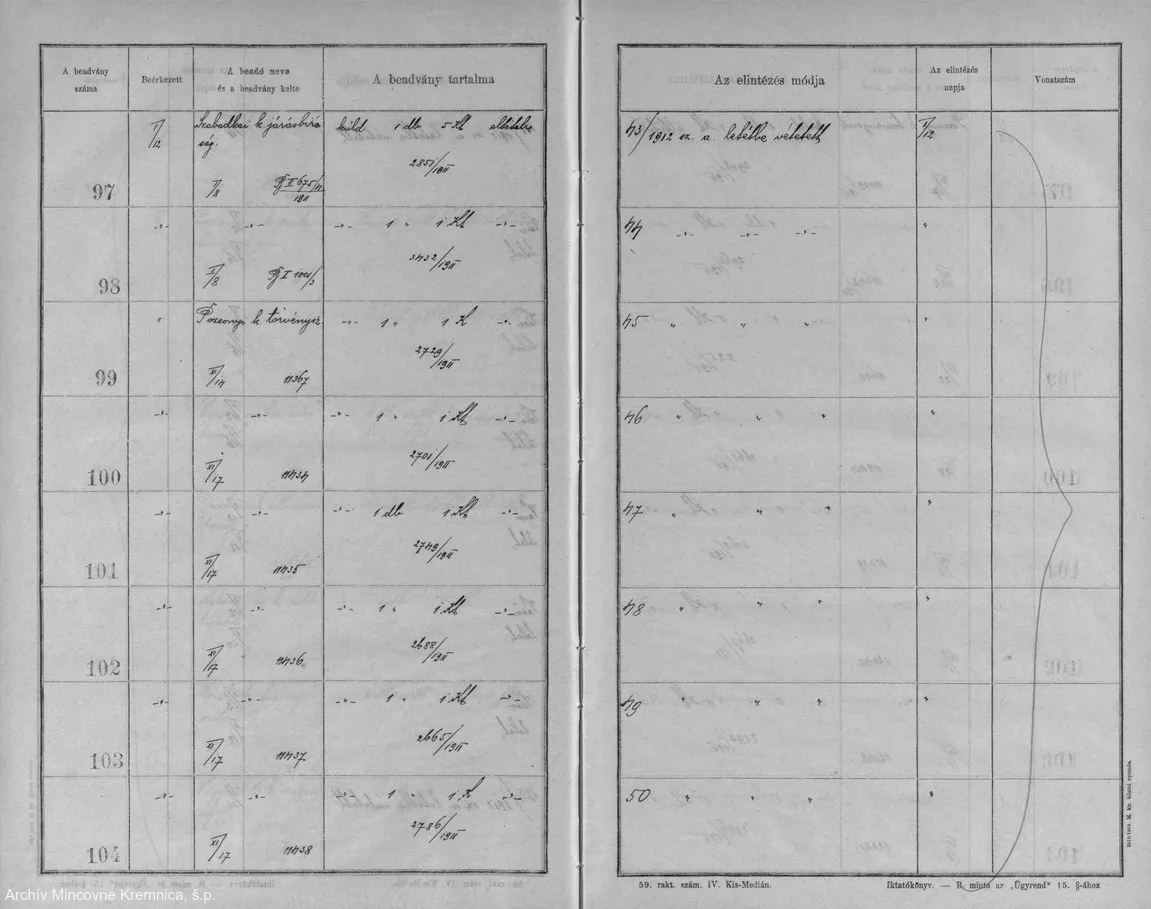 A beadvány száma
Beérkezett
A beadó neve és a beadvány kelte
A beadvány tartalma
Az elintézés módja
Az elintézés napja
Vonatszám
97
I/12
Szabadkai k. járásbíróság.
küld 1 db 5 Kt
2851/1911
43/1912 sz. a. letétbe vétetett
I/12
98
-„- -„- -„- 1 „ 1 Kt -„-
3432/1911
44 -„- -„- -„- „
99
„ Pozsonyi k. törvénysz. -„- 1 „ 1 K -„-
2729/1911
XI/14 11367
45 „ „ „ „
100
-„- -„- -„- 1 „ 1 Kt -„-
2701/1911
XI/17 11434
46 „ „ „ „
101
-„- -„- -„- 1 db 1 Kt -„-
2749/1911
XI/17 11435
47 „ „ „ „
102
-„- -„- -„- 1 „ 1 Kt -„-
2688/1911
XI/17 11436
48 „ „ „ „
103
-„- -„- -„- 1 „ 1 Kt -„-
2665/1911
XI/17 11437
49 „ „ „ „
104
-„- -„- -„- 1 „ 1 K -„-
2786/1911
XI/17 11438
50 „ „ „ „
59. rakt. szám. IV. Kis-Medián.
Iktatókönyv. — R. minta az „Ügyrend" 15. §-ához
Archív Mincovne Kremnica, š.p.